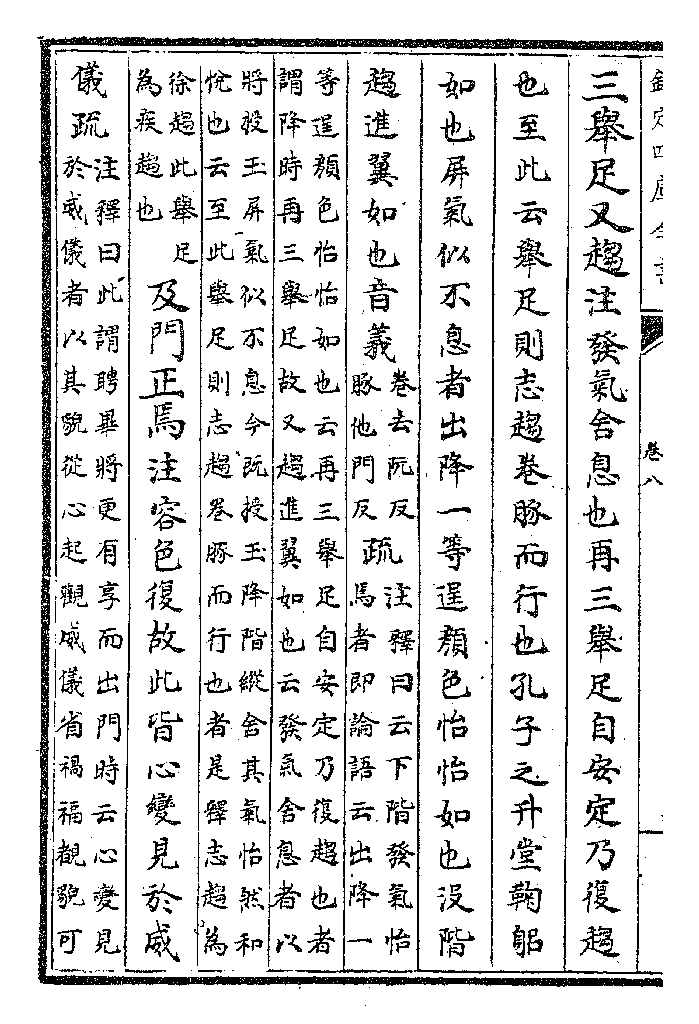 欽定四庫全書
卷八
三舉足又趨注發氣舍息也再三舉足自安定乃復趨
也至此云舉足則志趨卷豚而行也孔子之升堂鞠躬
如也屏氣似不息者出降一等逞顏色怡怡如也沒階
趨進翼如也音義
卷去阮反
豚他門反
疏
注釋曰云下階發氣怡
焉者即論語云出降一
等逞顏色怡怡如也云再三舉足自安定乃復趨也者
謂降時再三舉足故又趨進翼如也云發氣舍息者以
將授玉屏氣似不息今既授玉降階縱舍其氣怡然和
悅也云至此舉足則志趨卷豚而行也者是釋志趨為
徐趨此舉足
為疾趨也
及門正焉注容色復故此皆心變見於威
儀疏
注釋曰此謂聘畢將更有享而出門時云心變見
於威儀者以其貌從心起觀威儀省禍福觀貌可